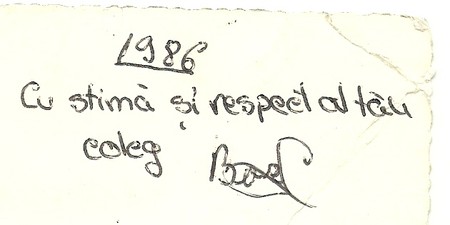 1986
Cu stimă și respect al tău
coleg